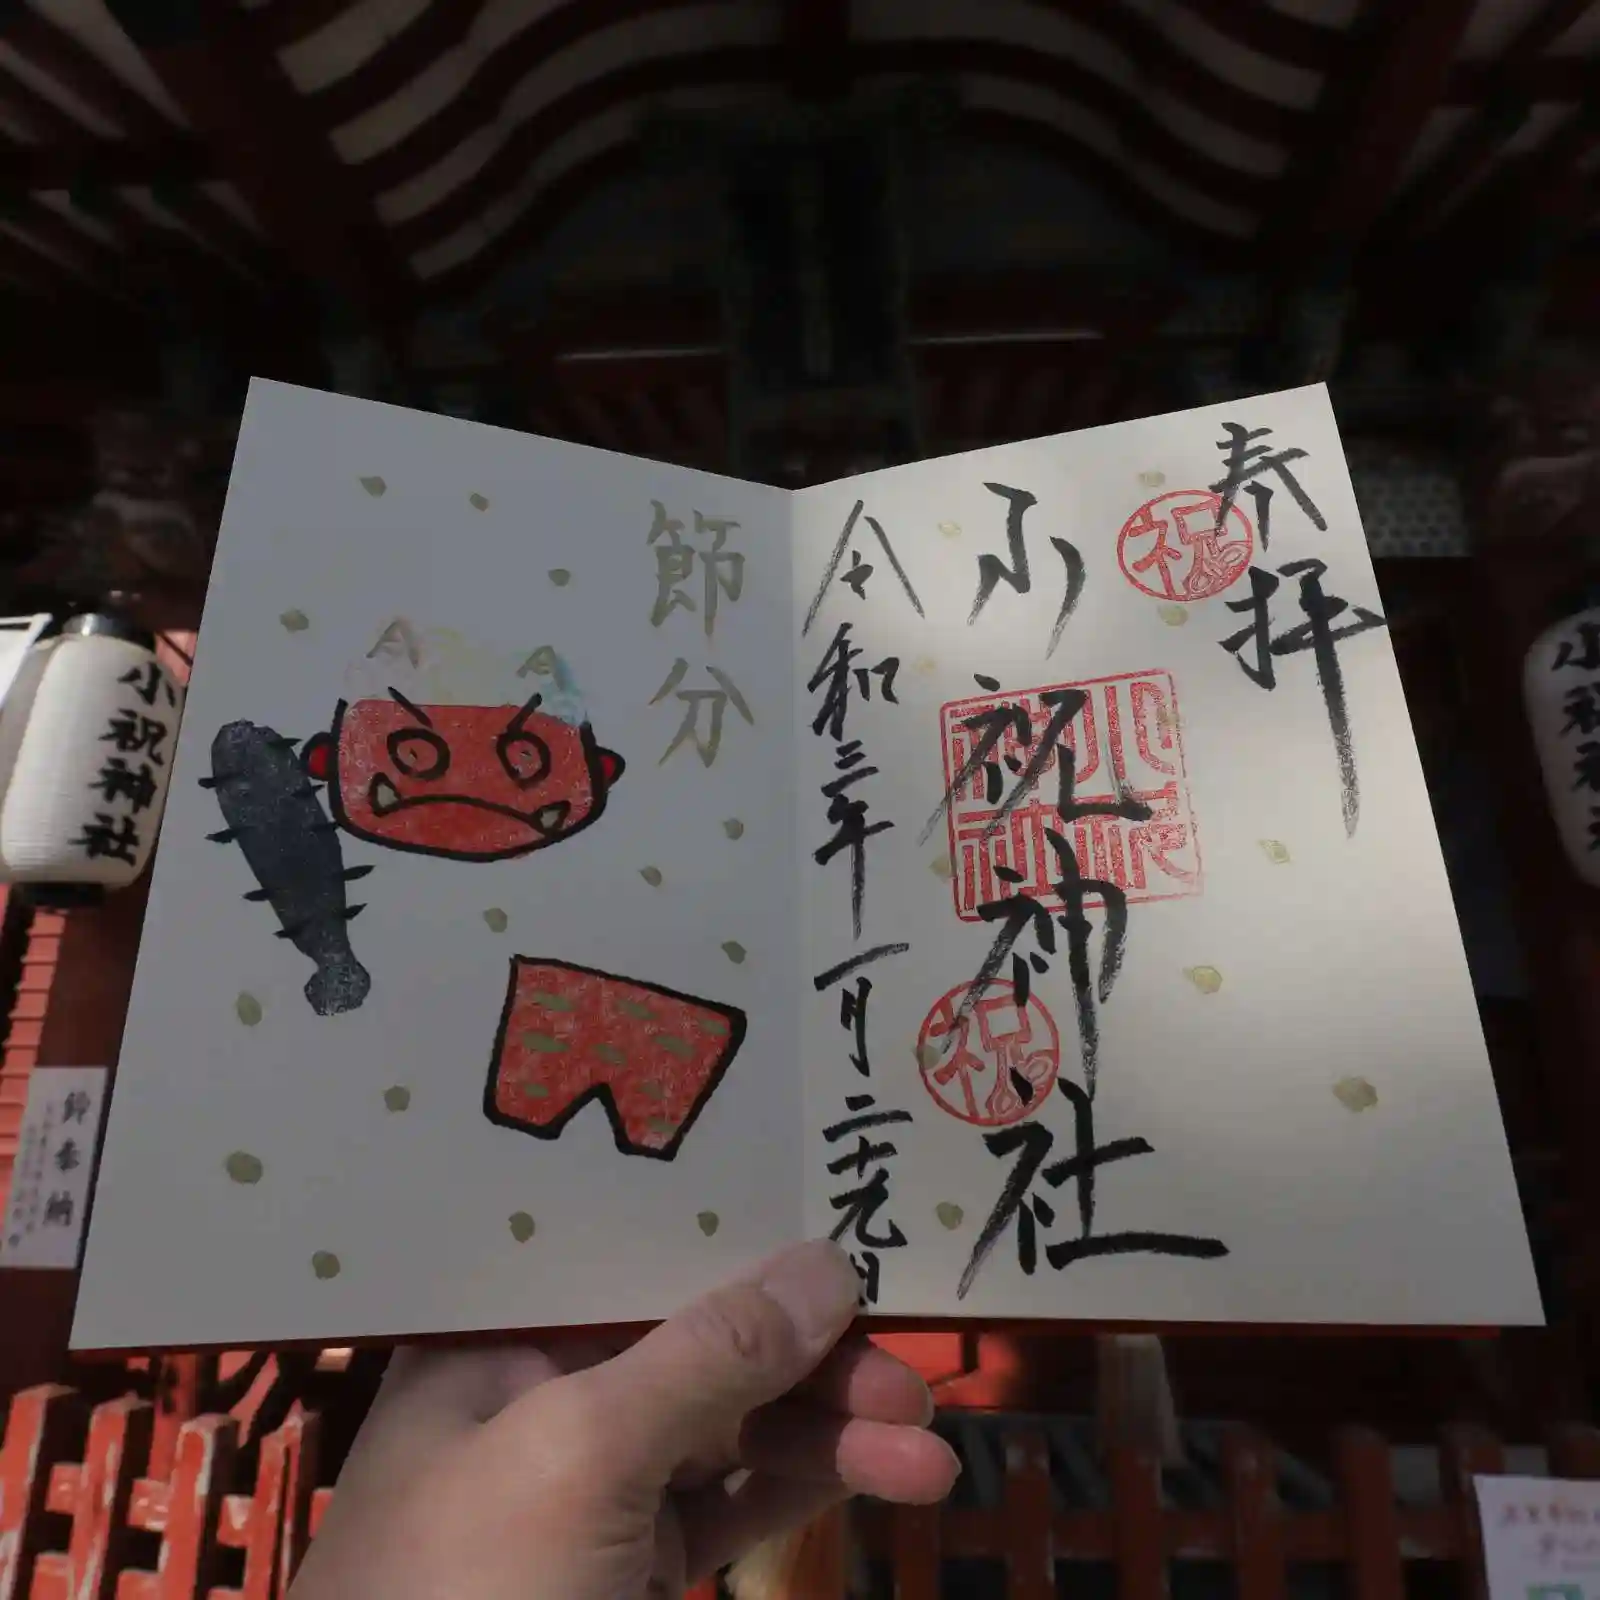 奉拝
祝
小祝神社
小祝神社
祝
令和三年一月二十九日
節分
小祝神社
鈴奉納
小祝神社